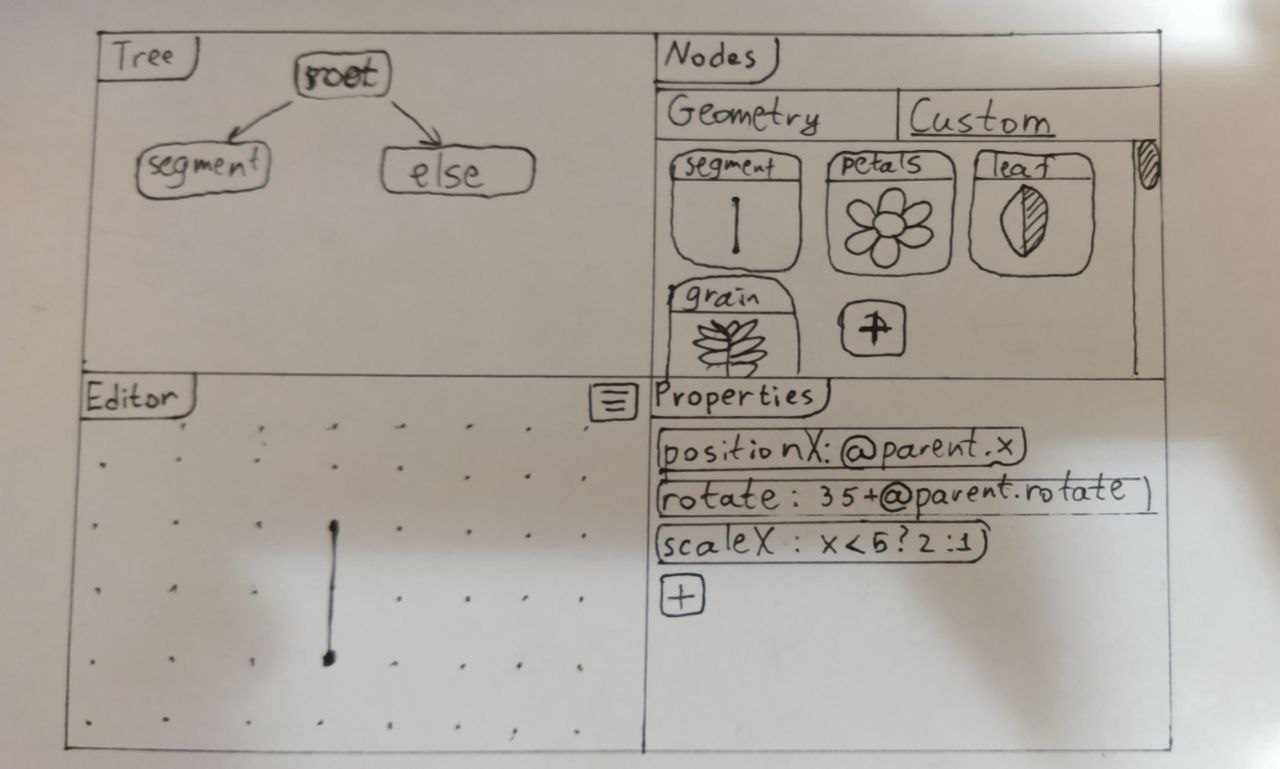 Tree
root
segment
else
Nodes
Geometry
Custom
segment
petals
leaf
grain
+
Editor
Properties
positionX: @parent.x
rotate: 35+@parent.rotate
scaleX: x<5?2:1
+